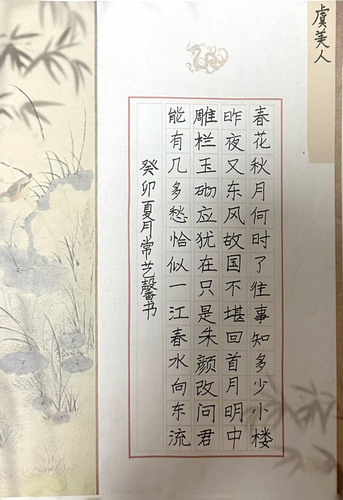 虞美人
春花秋月何时了往事知多少小楼
昨夜又东风故国不堪回首月明中
雕栏玉砌应犹在只是朱颜改问君
能有几多愁恰似一江春水向东流
癸卯夏月常艺馨书